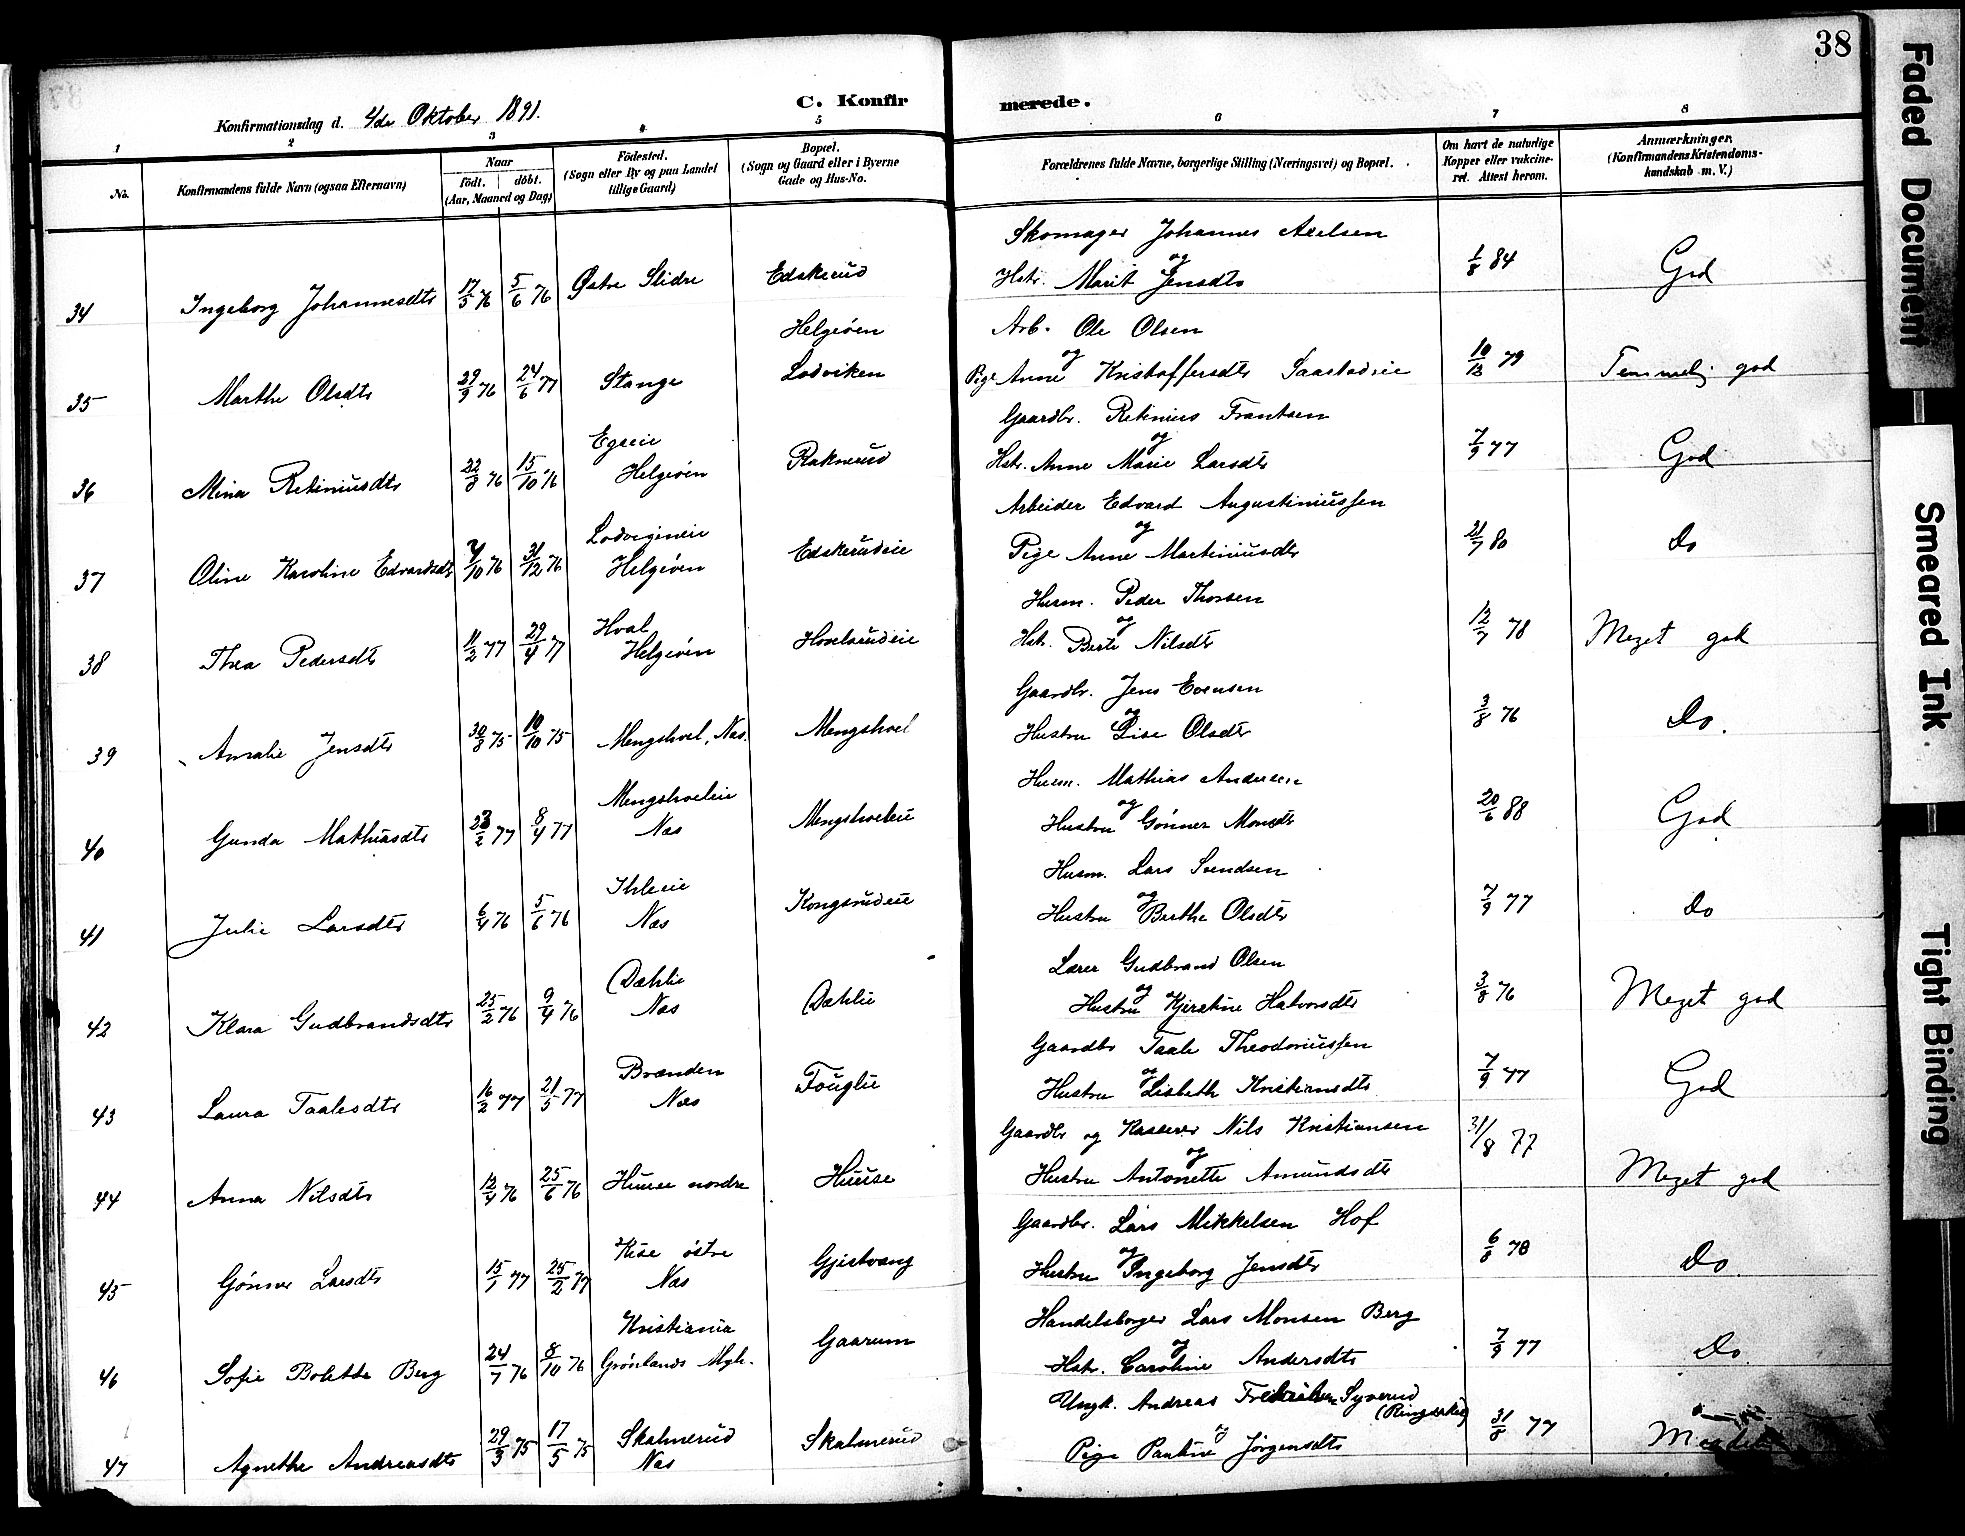 38
C. Konfirmerede.
Konfirmationsdag d. 4de Oktober 1891.
1 2 3 4 5 6 7 8
No.
Konfirmandens fulde Navn (ogsaa Efternavn)
Naar
født. døbt.
(Aar, Maaned og Dag)
Fødested.
(Sogn eller By og paa Landet
tillige Gaard)
Bopæl.
(Sogn og Gaard eller i Byerne
Gade og Hus-No.
Forældrenes fulde Navne, borgerlige Stilling (Næringsvei) og Bopæl.
Om havt de naturlige
Kopper eller vakcine-
ret. Attest herom.
Anmærkninger.
(Konfirmandens Kristendoms-
kundskab m. V.)
Skomager Johannes Axelsen
34 Ingeborg Johannesdtr 17/5 76 5/6 76 Østre Slidre Edskerud og Hstr. Marit Jensdtr 1/8 84 God
Helgeøen Arb. Ole Olsen
35 Marthe Olsdtr 29/9 76 24/6 77 Stange Lodviken og Pige Anne Kristoffersdtr Saastadeie 10/12 79 Temmelig god
Egseie Gaardbr. Retinius Frantsen
36 Mina Retiniusdtr 22/8 76 15/10 76 Helgeøen Raknerud og Hstr. Anne Marie Larsdtr 7/9 77 God
Lodvigineie Arbeider Edvard Augustiniussen
37 Oline Karoline Edvardsdtr /10 76 31/12 76 Helgeøen Edskerudeie og Pige Anne Martiniusdtr 21/7 80 Do
Hval Husm. Peder Thorsen
38 Thea Pedersdtr 11/2 77 29/4 77 Helgeøen Hovelsrudeie og Hst. Berte Nilsdtr 12/7 78 Meget god
Gaardbr. Jens Evensen
39 Amalie Jensdtr 30/8 75 10/10 75 Mengshoel, Næs. Mengshoel og Hustru Lise Olsdtr 3/8 76 Do.
Mengshoeleie Husm. Mathias Andersen
40 Gunda Mathiasdtr 23/2 77 8/4 77 Næs Mengshoeleie og Hustru Gønner Monsdtr 20/6 88 God
Ihleeie Husm. Lars Svendsen
41 Julie Larsdtr 6/4 76 5/6 76 Næs Kongsrudeie og Hustru Berthe Olsdtr 7/9 77 Do
Dæhlie Lærer Gudbrand Olsen
42 Klara Gudbrandsdtr 25/2 76 9/4 76 Næs Dæhlie og Hustru Kjerstine Halvorsdtr 3/8 76 Meget god
Brænden Gaardbr Taale Theodoriussen
43 Laura Taalesdtr 16/2 77 21/5 77 Næs Fouglie og Hustru Lisbeth Kristiansdtr 7/9 77 God
Gaardbr og Kasserer Nils Kristiansen
44 Anna Nilsdtr 12/4 76 25/6 76 Huuse nordre Huuse og Hustru Antonette Amundsdtr 31/8 77 Meget god
Kise østre Gaardbr. Lars Mikkelsen Hof
45 Gønner Larsdtr 15/1 77 25/2 77 Næs Gjestvang og Hustru Ingeborg Jensdtr 6/8 78 Do.
Kristiania Handelsborger Lars Monsen Berg
46 Sofie Bolette Berg 24/7 76 8/10 76 Grønlands Mgh. Gaarum og Hstr. Caroline Andersdtr 7/9 77 Do
Skalmerud Ungk. Andreas Syverud
(Ringsaker)
47 Agnethe Andreasdtr 29/3 75 17/5 75 Næs Skalmerud og Pige Pauline Jørgensdtr 31/8 77
Faded Document
Smeared Ink
Tight Binding